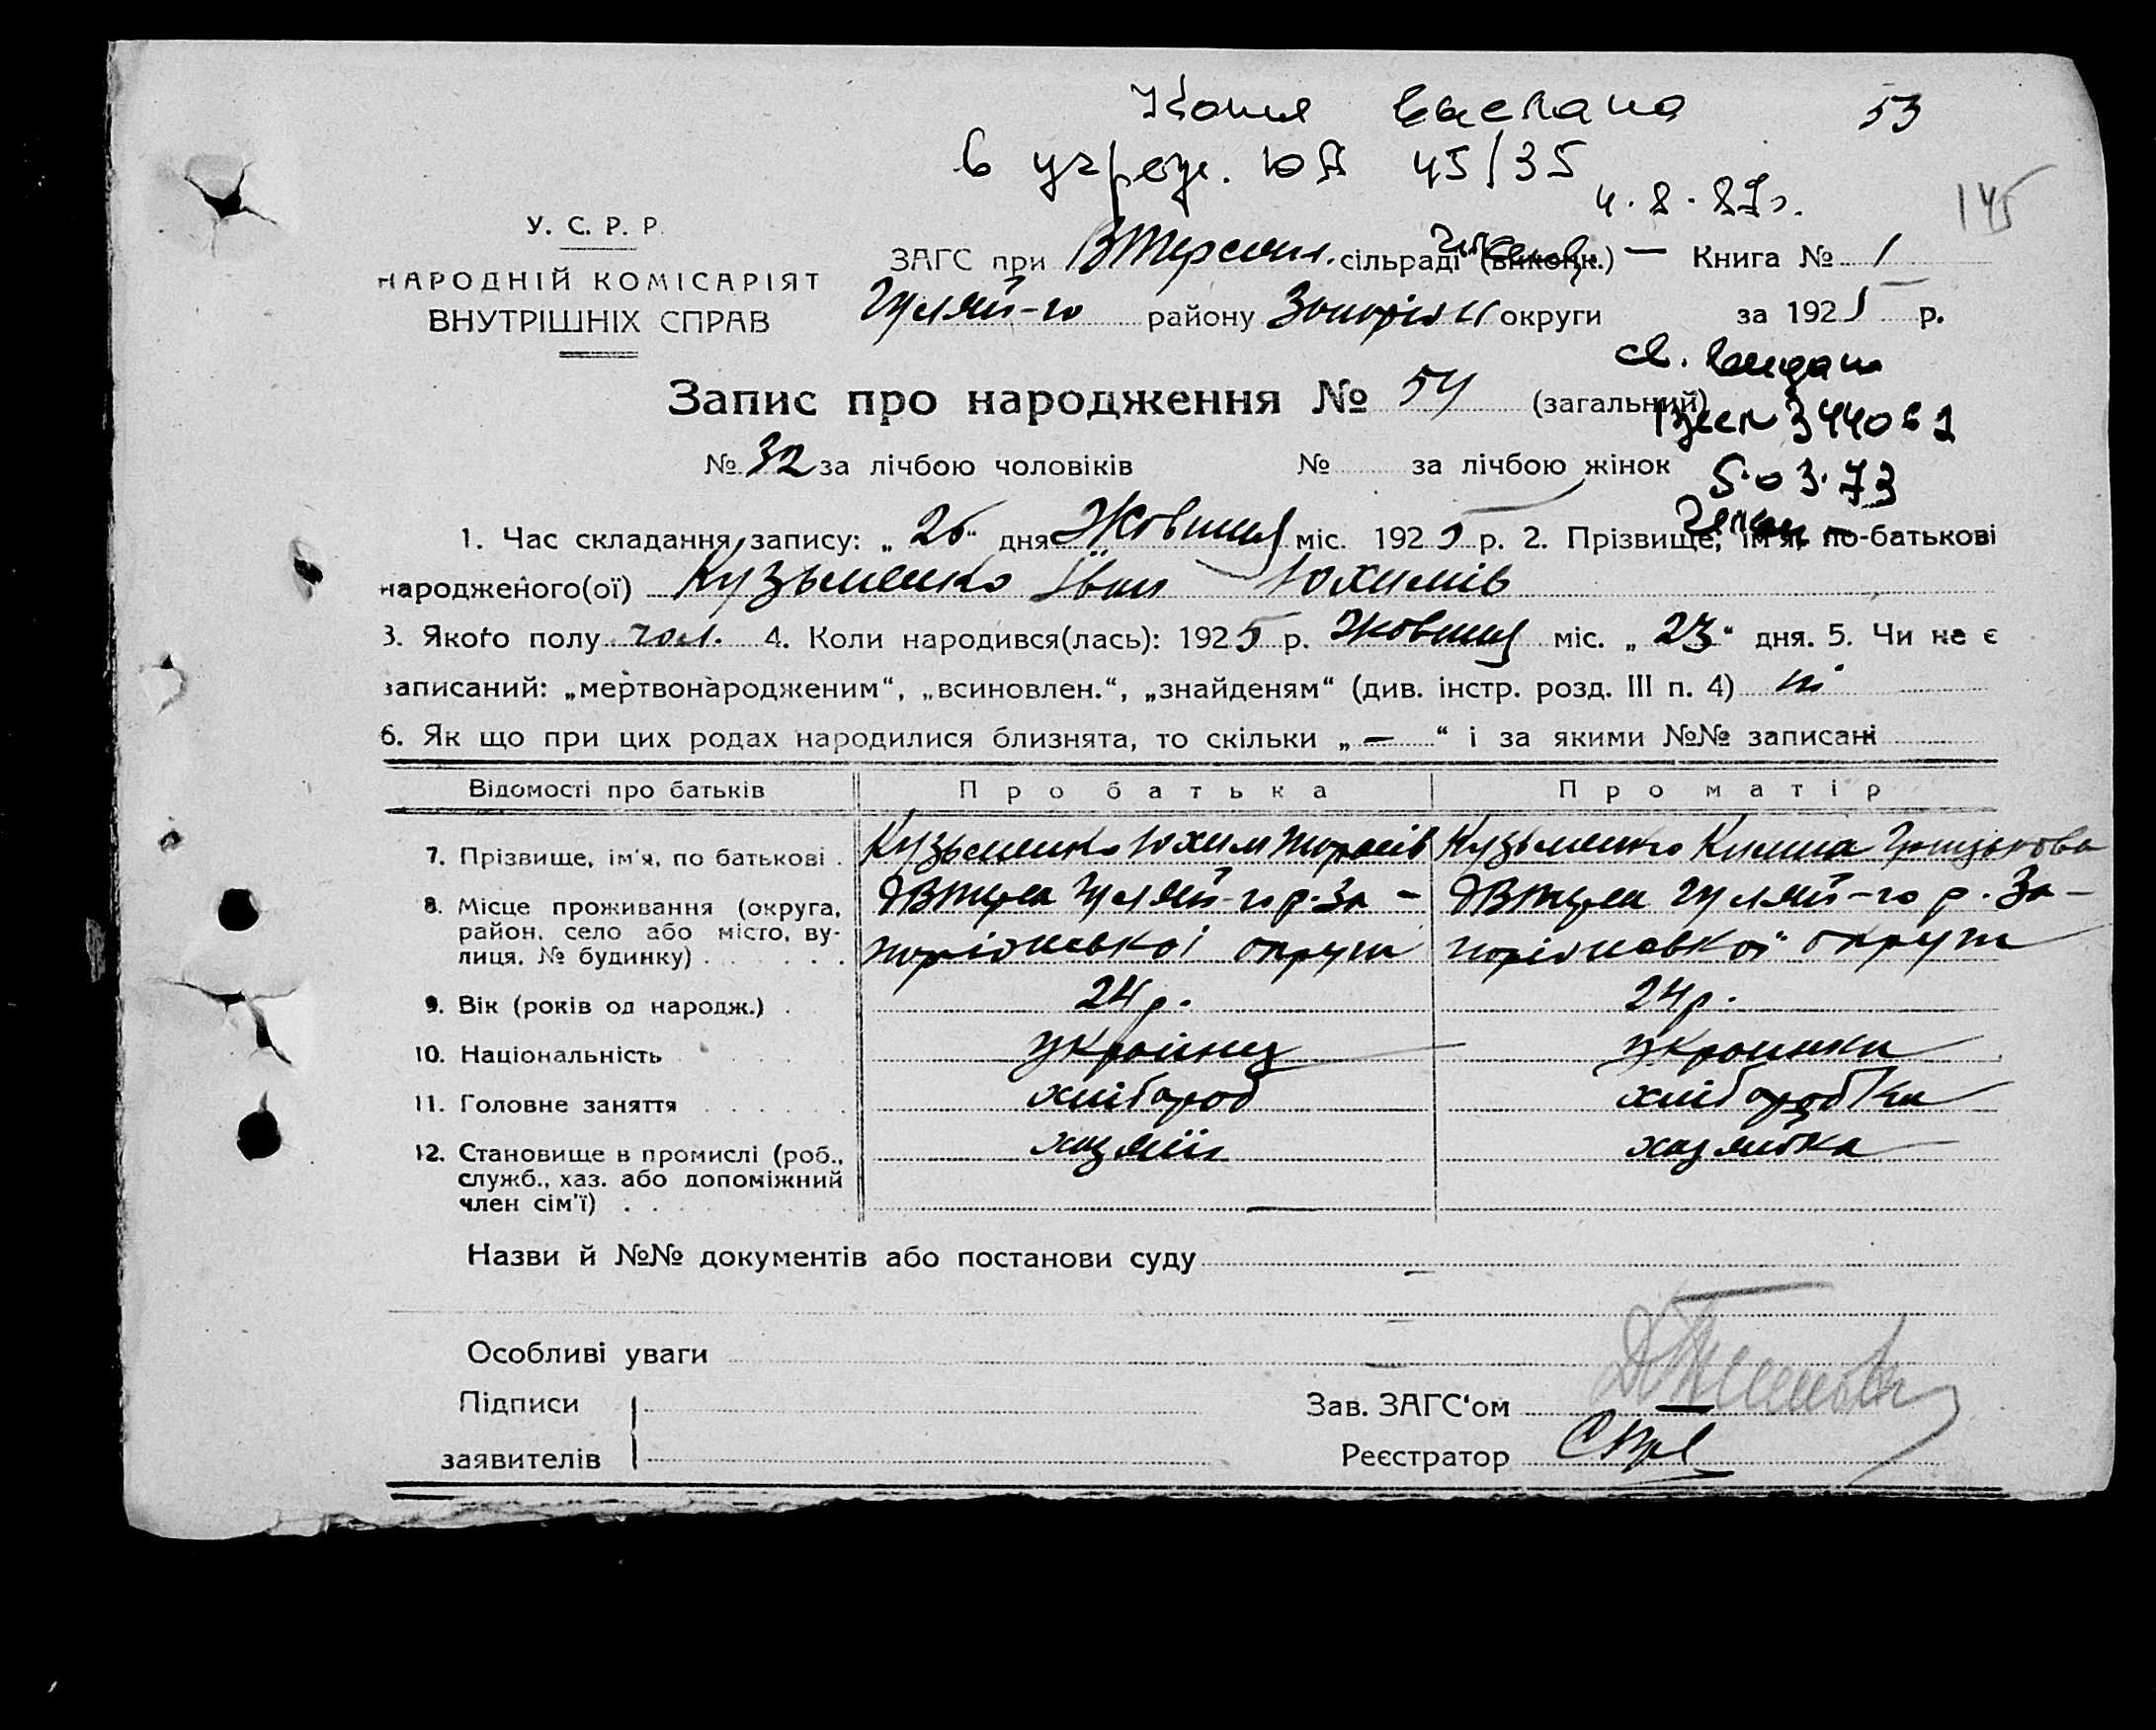 Копия выслана 53
в учрежд. ЮЯ 45/35
4.8.87г. 145
У. С. Р. Р.
НАРОДНІЙ КОМІСАРІЯТ
ВНУТРІШНІХ СПРАВ
ЗАГС при ВТерсян. сільраді (виконк.) — Книга № 1
Гуляй-го району Запоріз округи за 1925 р.
св. выдано
Запис про народження № 54 (загальний)
344062
№ 32 за лічбою чоловіків № за лічбою жінок
5.03.73
1. Час складання запису: „26“ дня Жовтня міс. 1925 р. 2. Прізвище, ім'я, по-батькові
народженого(ої) Кузьменко Іван Юхимів
3. Якого полу чол. 4. Коли народився(лась): 1925 р. Жовтня міс. „23“ дня. 5. Чи не є
записаний: „мертвонародженим“, „всиновлен.“, „знайденям“ (див. інстр. розд. III п. 4) ні
6. Як що при цих родах народилися близнята, то скільки „—“ і за якими №№ записані
Відомості про батьків Про батька Про матір
7. Прізвище, ім'я, по батькові . Кузьменко Юхим Тарасів Кузьменко Килина Грицькова
8. Місце проживання (округа, Гуляй-го р. За- Гуляй-го р. За-
район, село або місто, ву- порізської округи порізської округи
лиця, № будинку) . . . . . .
9. Вік (років од народж.) . 24 р. 24 р.
10. Національність українец українка
11. Головне заняття . . . . . хлібороб хліборобка
12. Становище в промислі (роб., хазяїн хазяйка
служб., хаз. або допоміжний
член сім'ї) . . .
Назви й №№ документів або постанови суду —
Особливі уваги —
Підписи Зав. ЗАГС'ом
заявителів Реєстратор